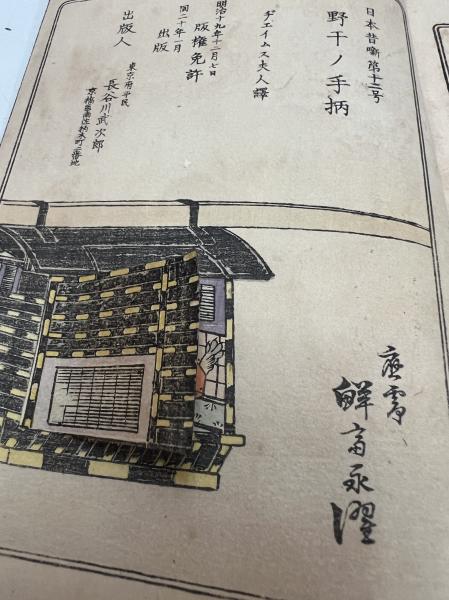 日本昔噺第十二号
野干ノ手柄
ヂエイムス夫人譯
明治十九年十二月七日
版権免許
同二十年一月
出版
出版人
東京府平民
長谷川武次郎
京橋區南佐柄木町二番地
應需
鮮斎永濯